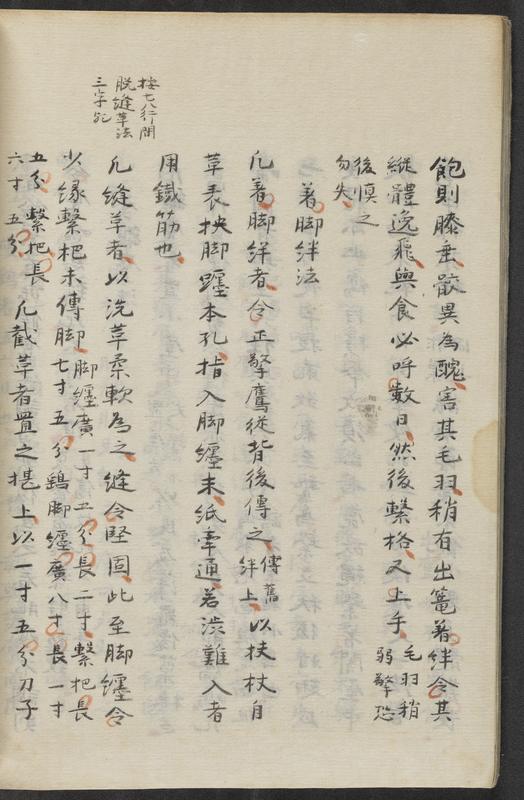 飽則膝垂骸異為醜害其毛羽稍有出篭着絆令其
縦體逸飛與食必呼数日然後繋格又上手毛羽稍弱擎恐
後慎之勿失
着脚絆法
凢着脚絆者令正擎鷹従背後傳之傳舊絆上以扶杖自
革表挟脚纒本孔指入脚纒末紙牽通若渋難入者
用鐵筋也
按七八行間
脱縫革法
三字乎
凢縫革者以洗革柔軟為之縫令堅固此至脚纒令
少縁繋杷末傳脚七寸五分脚纒廣一寸五分長二寸繋杷長
鶏脚纒廣八寸長一寸
五分繋杷長六寸五分凢截革者置之堪上以一寸五分刀子